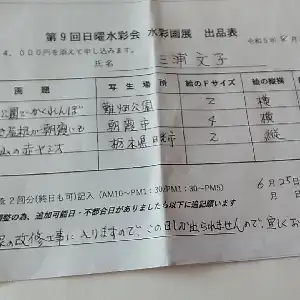 第９回日曜水彩会 水彩画展 出品表
4,000円を添えて申し込みます。
氏名 三浦文子
画題 写生場所 絵のFサイズ 絵の縦横
公園でかくれんぼ 公園 2 横
朝霞市 4 横
栃木県日光市 2 縦
2回分(終日も可)記入 (AM10～PM1：30/PM1：30～PM5) 6月25日
調整の為、追加可能日・不都合日がありましたら以下に追記願います
の改修工事に入りますので、この日しか出られませんので、宜しくお